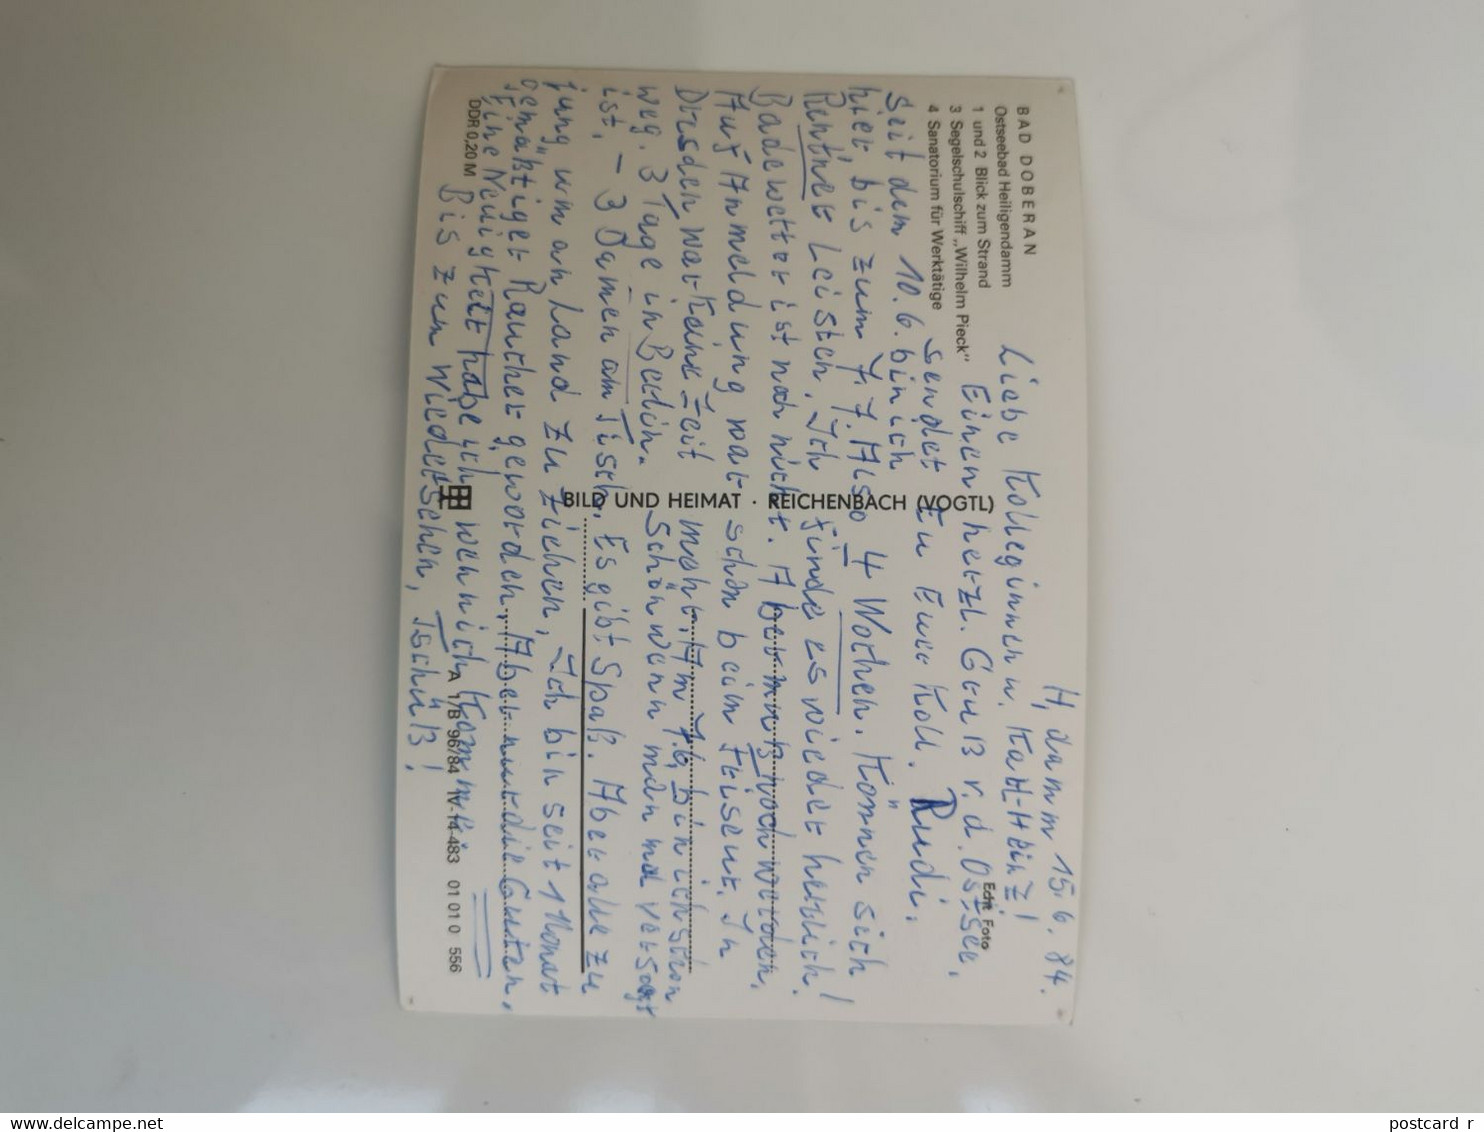 BAD DOBERAN
Ostseebad Heiligendamm
1 und 2 Blick zum Strand
3 Segelschulschiff „Wilhelm Pieck"
4 Sanatorium für Werktätige
H, damm 15.6.84.
Liebe Kolleginnen u. Karl-Heinz!
Einen herzl. Gruß v. d. Ostsee,
sendet Eu Euer Koll. Rudi.
Seit dem 10.6. bin ich
hier, bis zum 7.7. Also 4 Wochen. Können sich
Rentner Leisten. Ich finde es wieder herrlich!
Badewetter ist noch nicht. Aber muß noch werden.
Auf Anmeldung war schön beim Friseur. In
Dresden war keine Zeit mehr. Am 7.6. bin ich schon
weg. 3 Tage in Berlin. Schön wenn man mal versorgt
ist. - 3 Damen am Tisch. Es gibt Spaß. Aber alle zu
jung um an Land zu ziehen, Ich bin seit 1 Monat
gemäßtiger Raucher geworden. Aber nur die Guten,
Eine Neuigkeit habe ich wenn ich komme.
Bis zum Wiedersehen, Tschüß!
BILD UND HEIMAT · REICHENBACH (VOGTL)
Echt Foto
DDR 0,20 M
A 1/B 96/84 IV-14-483 01 01 0 556
www.delcampe.net
postcard r